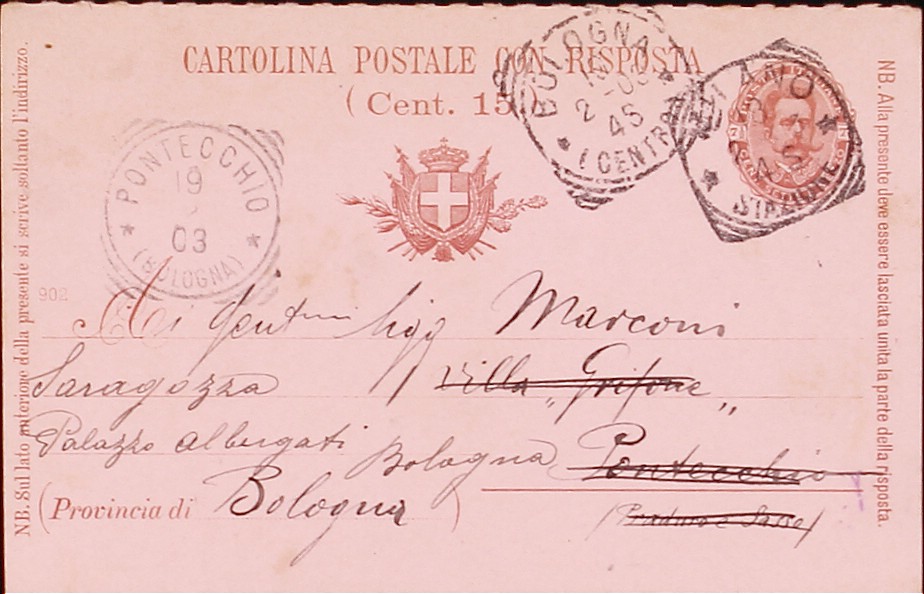 CARTOLINA POSTALE CON RISPOSTA
(Cent. 15
BOLOGNA
2
45
(CENTRALE
MILANO
STAZIONE
7
7
PONTECCHIO
19
03
(BOLOGNA)
902
Ai Gentmi Sigg Marconi
Saragozza Villa "Grifone"
Palazzo Albergati Bologna Pontecchio
(Provincia di Bologna)
(Praduro e Sasso)
NB. Sul lato anteriore della presente si scrive soltanto l'indirizzo.
NB. Alla presente deve essere lasciata unita la parte della risposta.